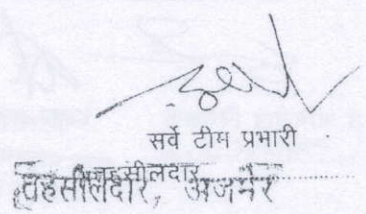 सर्वे टीम प्रभारी
तहसीलदार
तहसीलदार, अजमेर